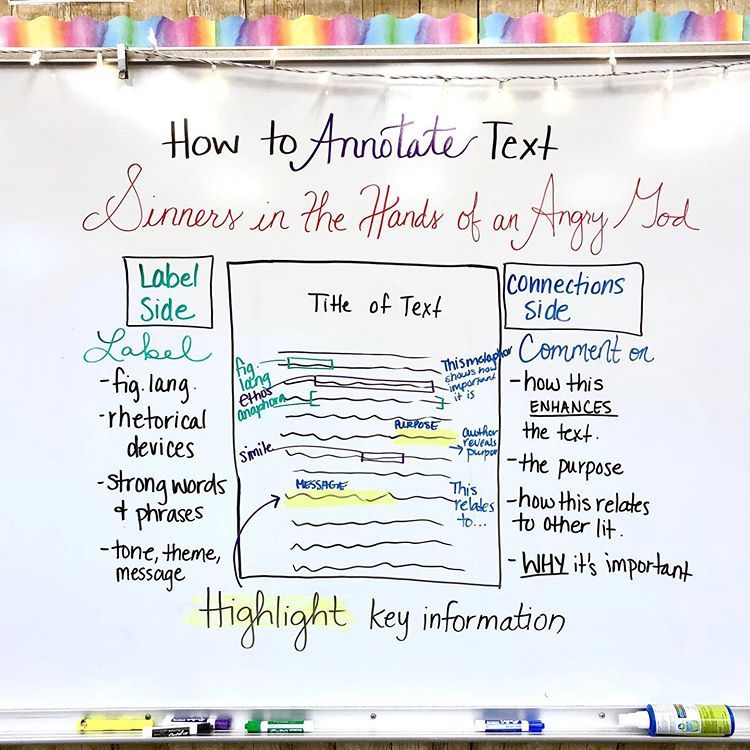 How to Annotate Text
Sinners in the Hands of an Angry God
Label
Side
Label
- fig. lang.
- rhetorical
devices
- strong words
& phrases
- tone, theme,
message
Title of Text
fig.
lang
ethos
anaphora
simile
PURPOSE
MESSAGE
This metaphor
shows how
important
it is
author
reveals
This
relates
to...
Connections
Side
Comment on
- how this
ENHANCES
the text.
- the purpose
- how this relates
to other lit.
- WHY it's important
Highlight key information